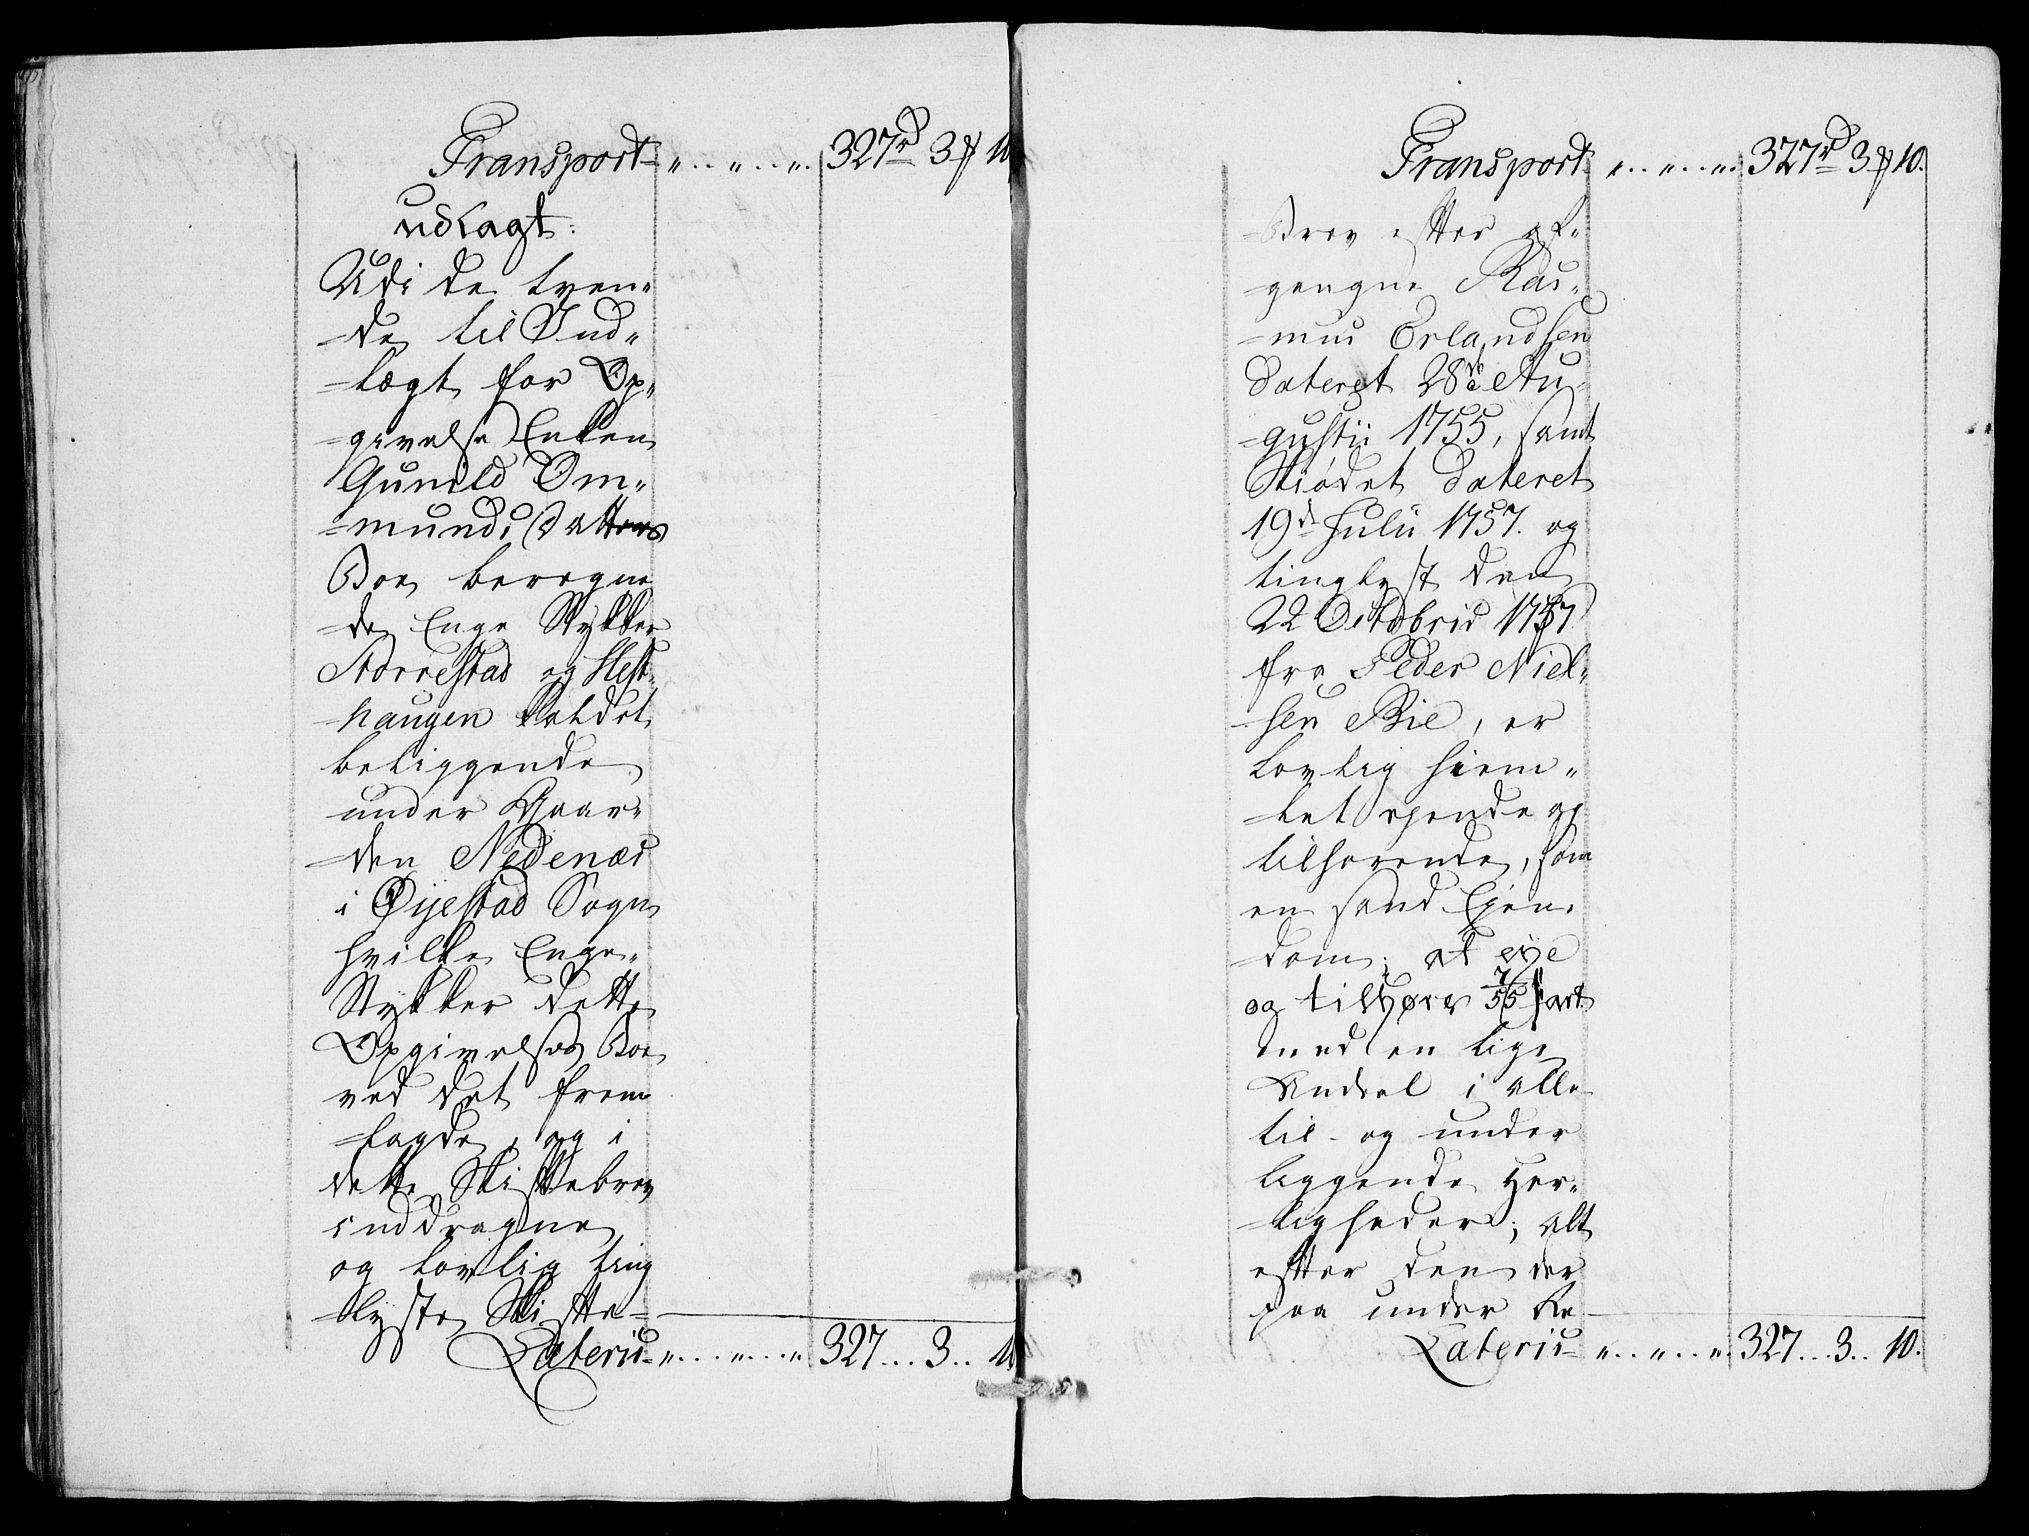 Transport „..„..„. 327rd 3 ß 10
udlagt:
Udi de tven„
-de til Ind„
-lægt for Op„
-givelse Enken
Gunild Om„
-munds Datters
Boe beregne
-de Enge Stykker
Storrestad og Hest„
-haugen kaldet
beliggende
under Gaar„
-den Nedenæs
i Øyestad Sogn
hvilke Enge„
Stykker dette
Opgivelses Boe
ved det frem
-lagde, og i
dette Skiftebrev
inddragne
og lovlig ting
-lyste Skifte-
Lateris „...„...„ 327...3..10
Transport „..„..„. 327rd 3 ß 10.
-Brev efter af„
-gangne Ras„
-mus Erlandsen
dateret 28de Au„
-gustii 1755, samt
Skiødet dateret
19de Julii 1757. og
tinglyst den
22 Octobris 1757
fra Peder Niel„
-sen Bie, er
lovlig hiem„
-let ejende og
tilhørende, som
en sand Ejen„
-dom; at eye
og tilhøre 7/55 part
med en lige
Andeel i alle
til- og under
liggende Her„
-ligheder; alt
efter den der
paa under Re
Lateris „..„..„. 327...3..10.